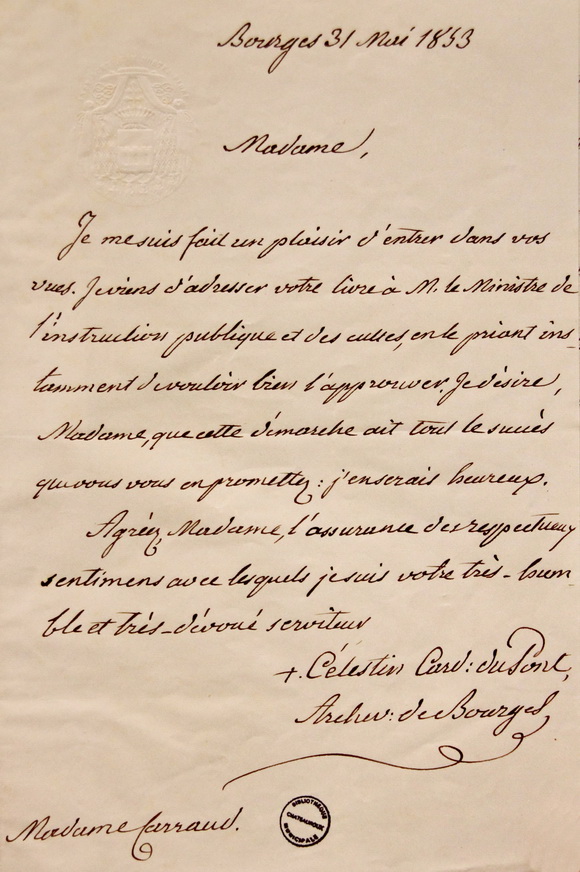 Bourges 31 Mai 1853
Madame,
Je me suis fait un plaisir d'entrer dans vos
vues. Je viens d'adresser votre livre à M. le Ministre de
l'instruction publique et des cultes, en le priant ins
tamment de vouloir bien l'approuver. Je désire,
Madame, que cette démarche ait tout le succès
que vous vous en promettez : j'en serais heureux.
Agréez, Madame, l'assurance des respectueux
sentimens avec lesquels je suis votre très-hum
ble et très-dévoué serviteur
+. Célestin Card: du Pont,
Archev: de Bourges
Madame Carraud.
BIBLIOTHÈQUE
CHATEAUROUX
MUNICIPALE